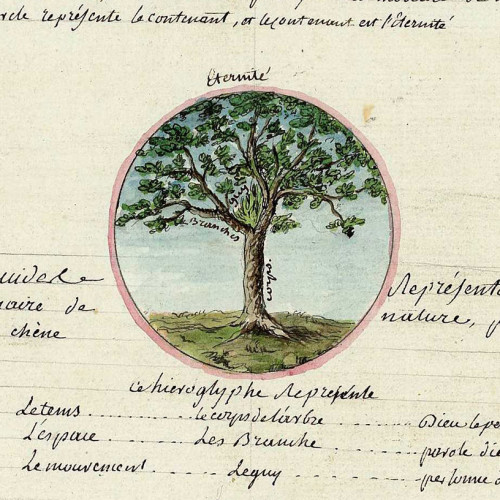 rcle représente le contenant, et le contenant est l'Eternité
Eternité
guy
Branches
corps.
Représente
naire de
nature,
chêne
Ce hieroglyphe Représente
Le tems ........ le corps de l'arbre ........ Dieu le pe
L'espace ........ Les Branche ........ parole d'ie
Le mouvement ........ Le guy ........ personne d